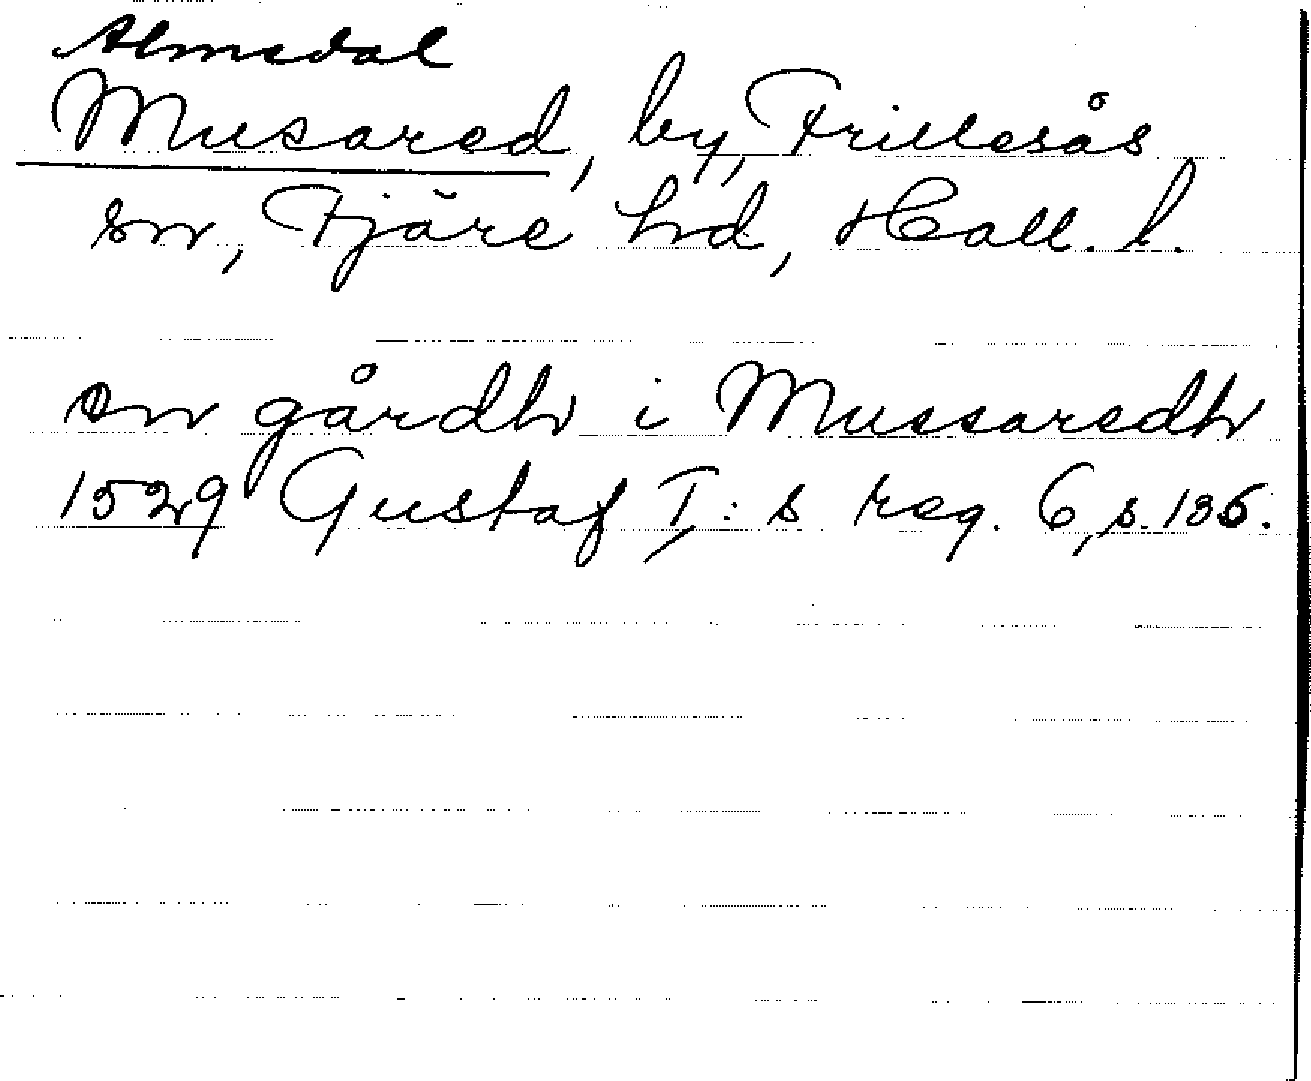 Almedal
Musared, by, Frillesås
sn, Fjäre hd, Hall. l.
en gårdh i Mussaredh
1529 Gustaf I:s reg. 6, s. 136.